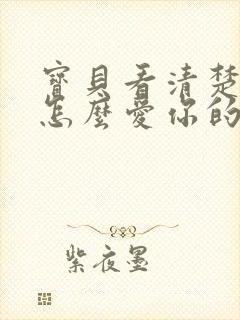 寶貝看清楚
怎麼愛你的
紫夜墨